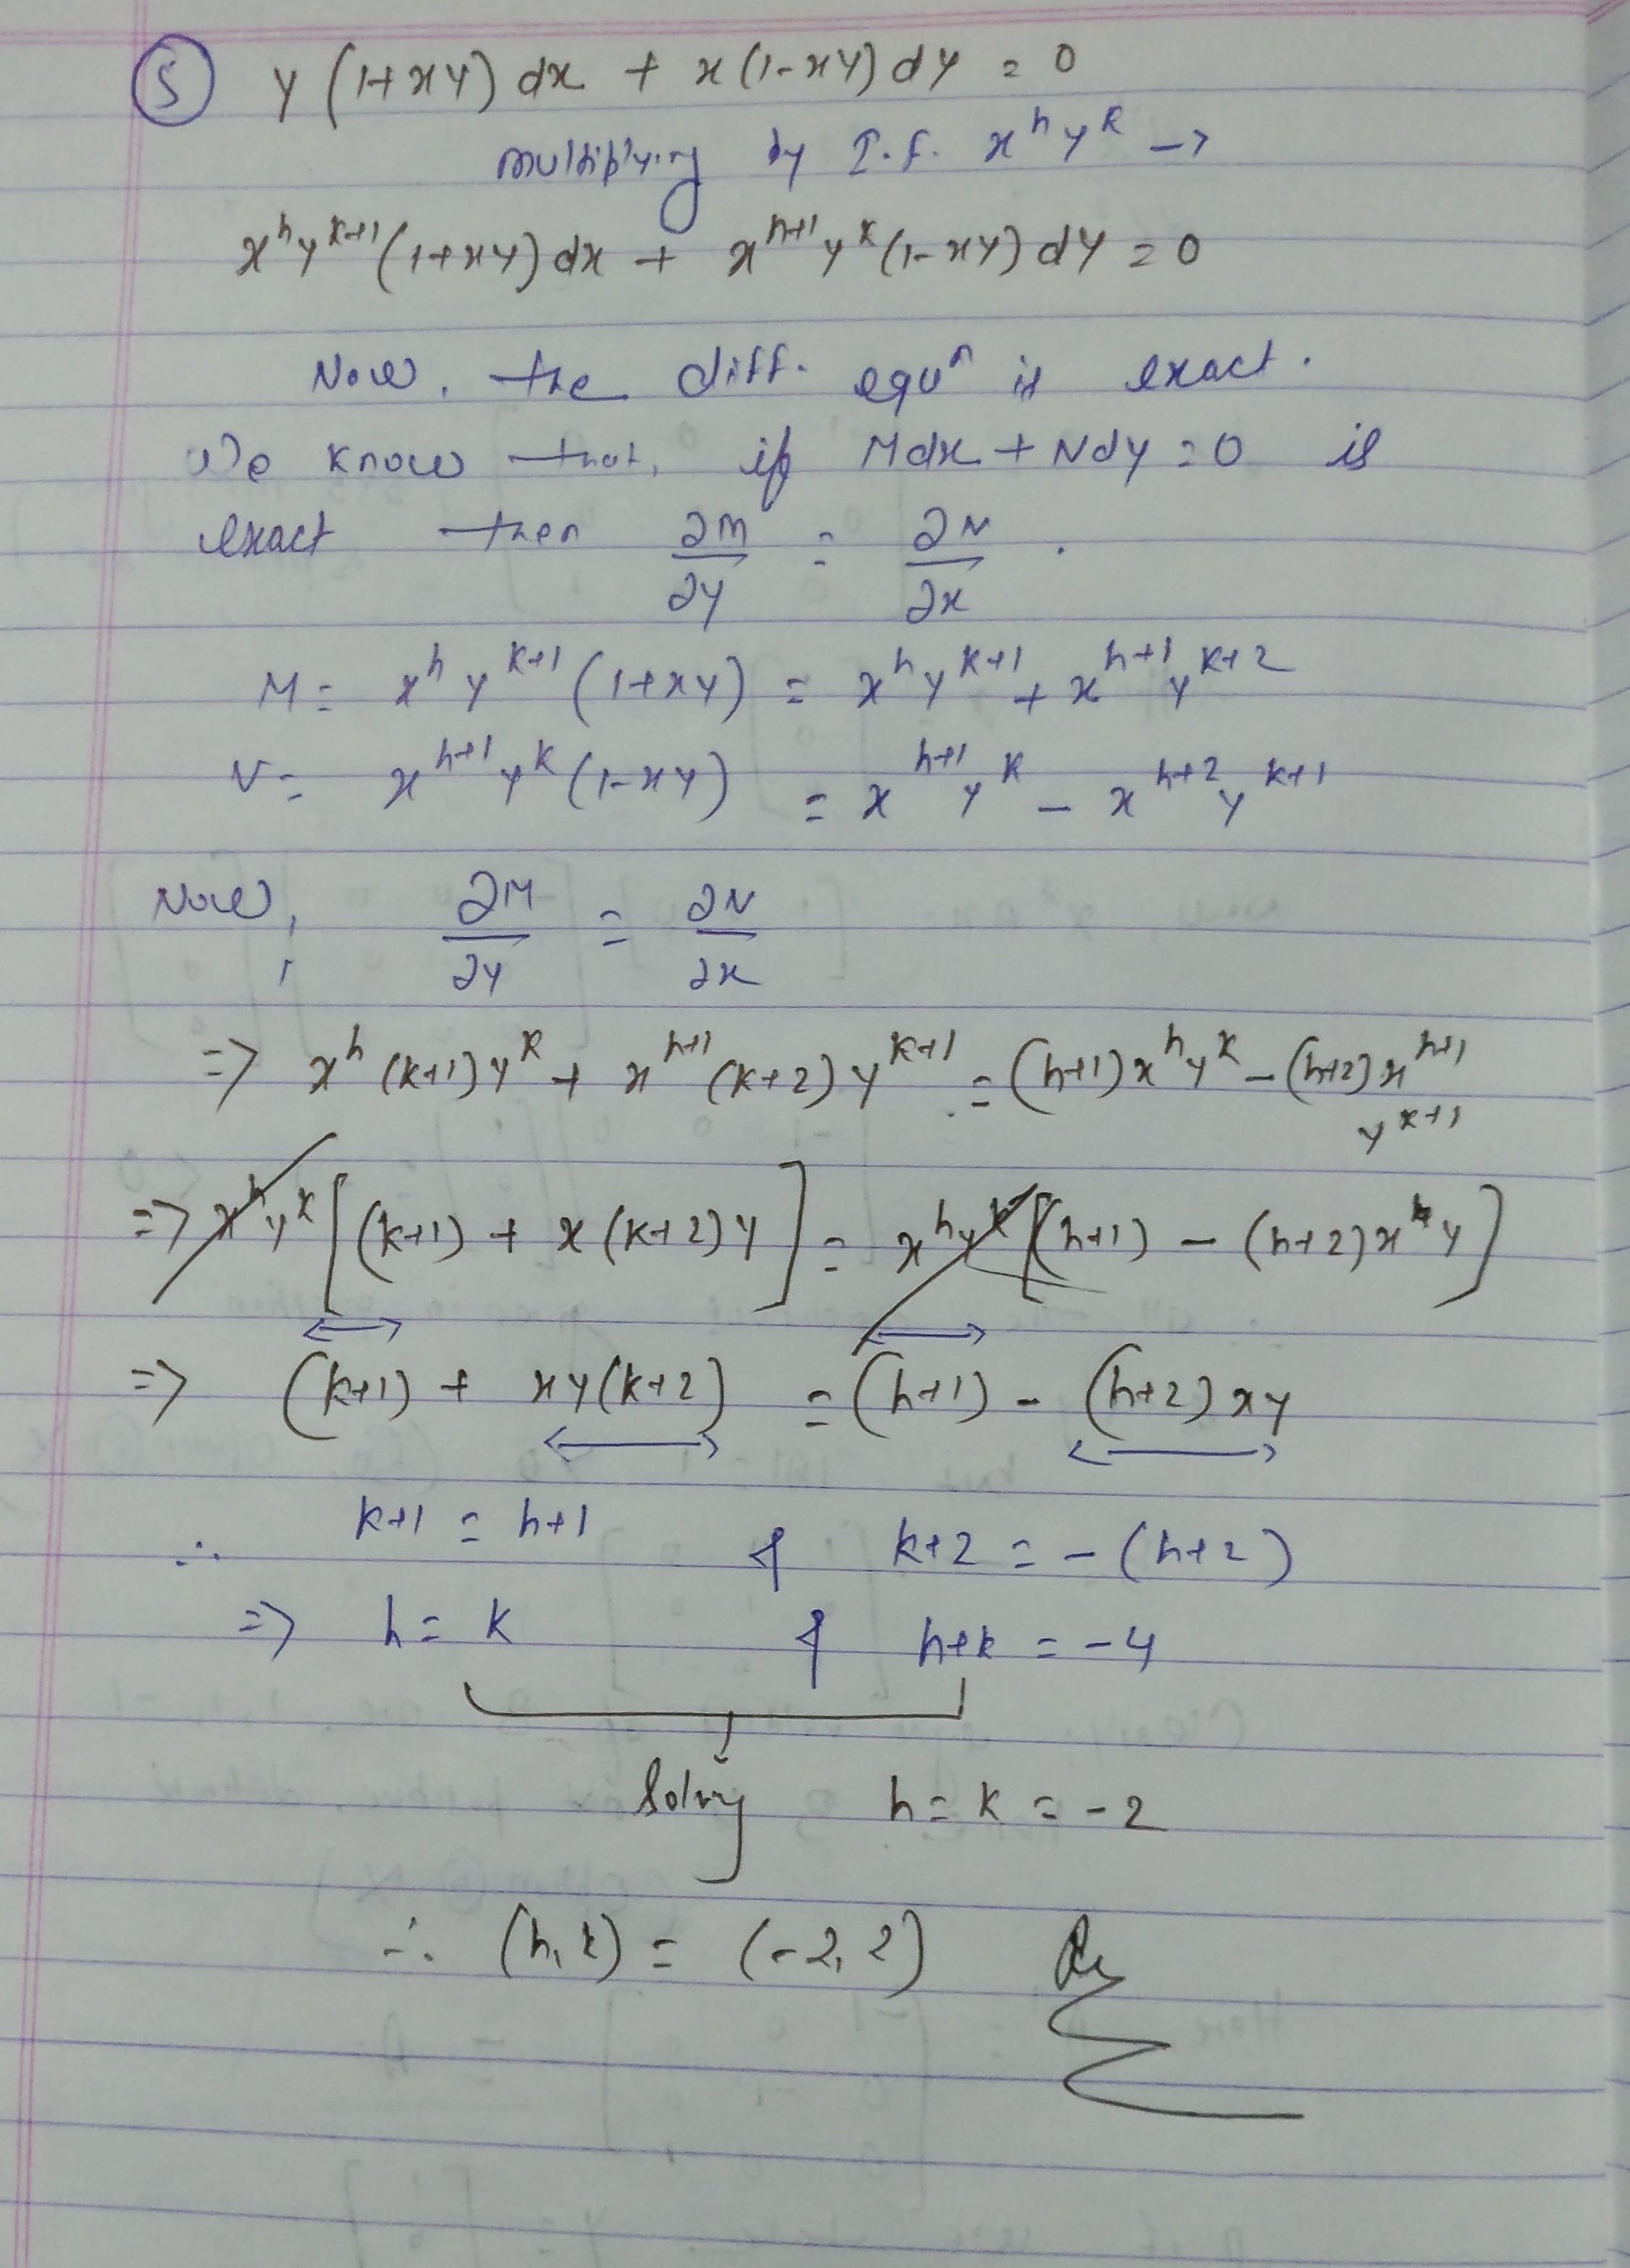 ⑤ y (1+xy) dx + x(1-xy) dy = 0
multiplying by I.f. x^h y^k →
x^h y^{k+1} (1+xy) dx + x^{h+1} y^k (1-xy) dy = 0
Now, the diff. equⁿ is exact.
We know that, if Mdx + Ndy = 0 is
exact then ∂M/∂y = ∂N/∂x .
M = x^h y^{k+1} (1+xy) = x^h y^{k+1} + x^{h+1} y^{k+2}
N = x^{h+1} y^k (1-xy) = x^{h+1} y^k - x^{h+2} y^{k+1}
Now, ∂M/∂y = ∂N/∂x
=> x^h (k+1) y^k + x^{h+1} (k+2) y^{k+1} = (h+1) x^h y^k - (h+2) x^{h+1}
y^{k+1}
=> x^h y^k [(k+1) + x (k+2) y] = x^h y^k [(h+1) - (h+2) x y]
=> (k+1) + xy (k+2) = (h+1) - (h+2) xy
∴ k+1 = h+1 & k+2 = -(h+2)
=> h = k & h+k = -4
Solving h = k = -2
∴ (h, k) = (-2, 2)